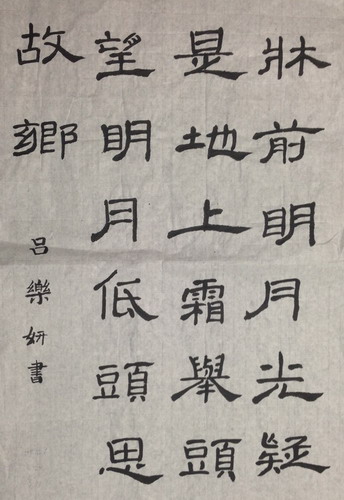 牀前明月光疑
是地上霜舉頭
望明月低頭思
故鄉
呂樂妍書